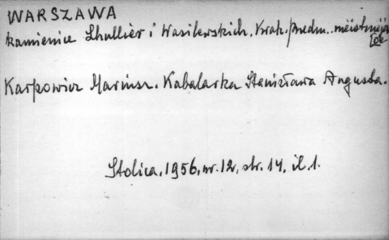 WARSZAWA
kamienice Lhullier i Wasilewskich. Krak. Przedm. nieistniejące
Karpowicz Mariusz. Kabalarka Stanisława Augusta.
Stolica, 1956, nr. 12, str. 14, il. 1.